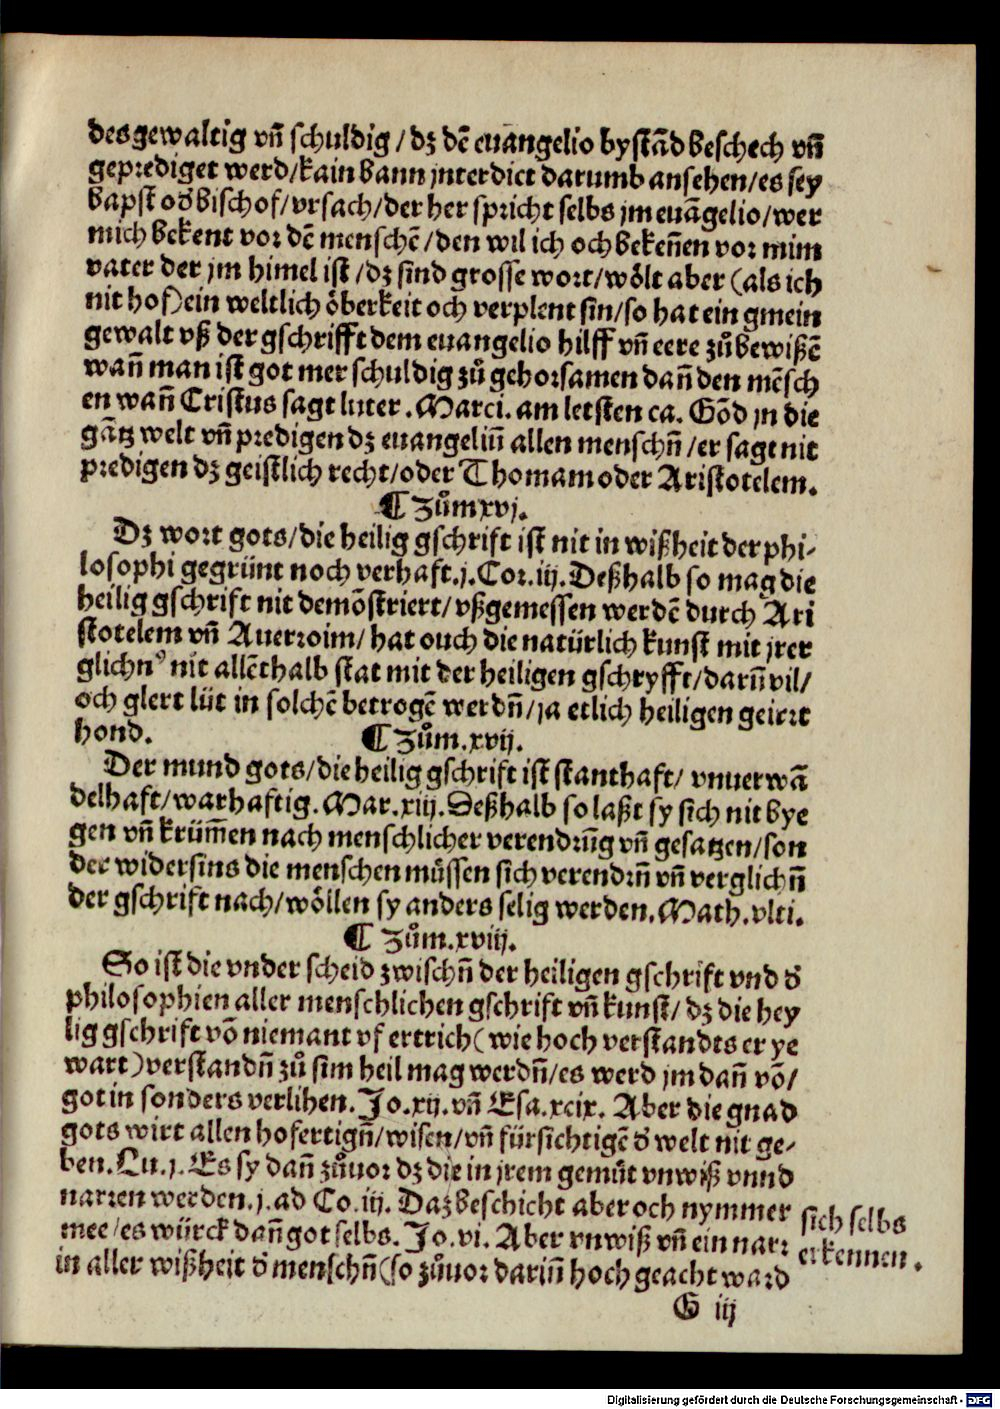 des gewaltig vn̄ schuldig / dz dē euangelio bystād beschech vn̄
geprediget werd/kain bann jnterdict darumb ansehen/es sey
bapst od̕ bischof/vrsach/der her spricht selbs jm euāgelio/wer
mich bekent vor dē menschē/den wil ich och bekeñen vor mim
vater der jm himel ist /dz sind grosse wort/wölt aber (als ich
nit hof) ein weltlich öberkeit och verplent sin/so hat ein gmein
gewalt vß der gschrifft dem euangelio hilff vn̄ eere zůbewißē
wan̄ man ist got mer schuldig zů gehorsamen dan̄ den mēsch
en wan̄ Cristus sagt luter. Marci. am letsten ca. Gōd jn die
gātz welt vn̄ predigen dz euangeliū allen menschn̄ /er sagt nit
predigen dz geistlich recht/oder Thomam oder Aristotelem.
¶ Zům xvj.
Dz wort gots/die heilig gschrift ist nit in wißheit der phi-
losophi gegrünt noch verhaft.j.Cor.iij. Deßhalb so mag die
heilig gschrift nit demōstriert/vßgemessen werdē durch Ari
stotelem vn̄ Auerroim/ hat ouch die natürlich kunst mit jrer
glichnꝰ nit allēthalb stat mit der heiligen gschryfft/darūvil/
och glert lüt in solchē betrogē werdn̄/ja etlich heiligen geirrt
hond. ¶ Zům.xvij.
Der mund gots/die heilig gschrift ist stanthaft/ vnuerwā
delhaft/warhaftig. Mar.xiij. Deßhalb so laßt sy sich nit bye
gen vn̄ krüm̄en nach menschlicher verendrūg vn̄ gesatzen/son
der widersins die menschen müssen sich verendrn̄ vn̄ verglichn̄
der gschrift nach/wöllen sy anders selig werden. Math.vlti.
¶ Zům.xviij.
So ist die vnder scheid zwischn̄ der heiligen gschrift vnd d̕
philosophien aller menschlichen gschrift vn̄ kunst/ dz die hey
lig gschrift vō niemant vf ertrich (wie hoch verstandts er ye
wart) verstandn̄ zů sim heil mag werdn̄/es werd jm dan̄ vō/
got in sonders verlihen. Jo.xij. vn̄ Esa.xcix. Aber die gnad
gots wirt allen hofertign̄/wisen/vn̄ fürsichtigē d̕ welt nit ge-
ben. Lu.j. Es sy dan̄ zůuor dz die in jrem gemüt vnwiß vnnd
narren werden.j. ad Co.iij. Daz beschicht aber och nymmer
mee /es würck dan̄ got selbs. Jo.vi. Aber vnwiß vn̄ ein narr
in aller wißheit d̕ menschn̄ (so zůuor darin̄ hoch geacht ward
sich selbs
erkennen.
G iij
Digitalisierung gefördert durch die Deutsche Forschungsgemeinschaft - DFG